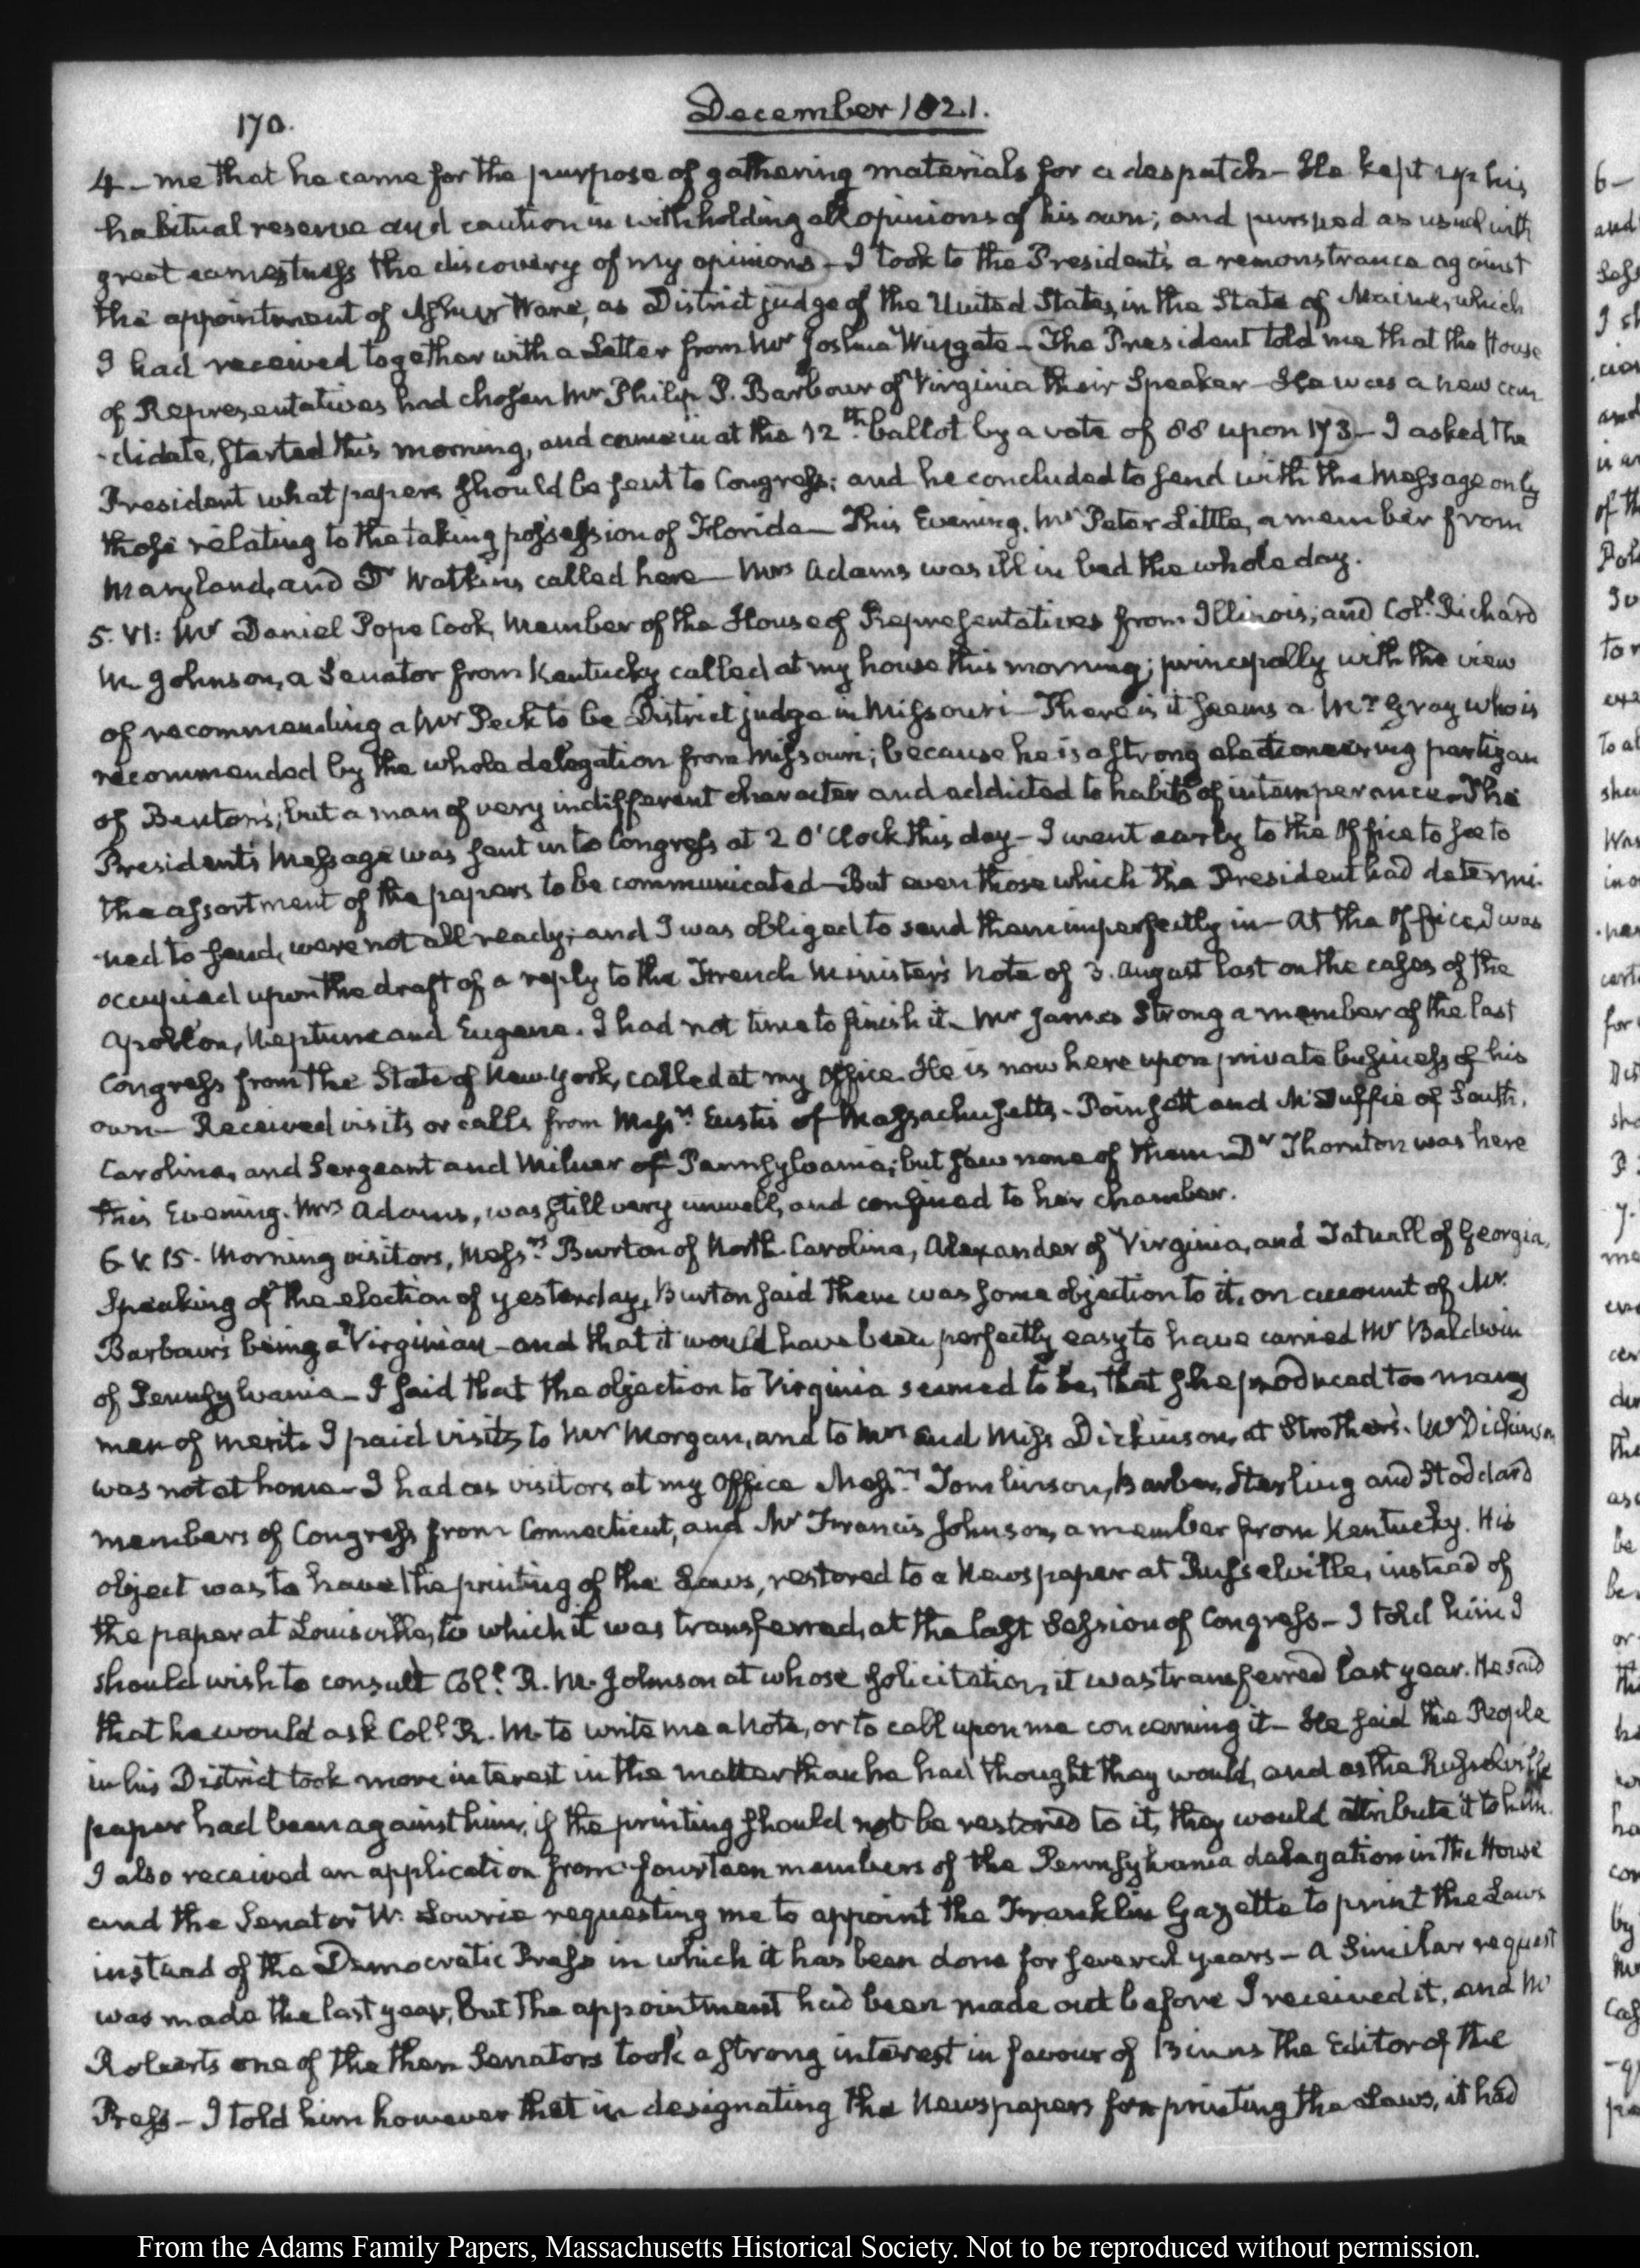 170.
December 1821.
4 - me that he came for the purpose of gathering materials for a despatch - He kept up his
habitual reserve and caution in withholding all opinions of his own; and pursued as usual with
great earnestness the discovery of my opinions - I took to the President's a remonstrance against
the appointment of Ashur Ware, as District judge of the United States, in the State of Maine, which
I had received together with a Letter from Mr Joshua Wingate - The President told me that the House
of Representatives had chosen Mr Philip P. Barbour of Virginia their Speaker - He was a new can
-didate, started this morning, and came in at the 12th. ballot by a vote of 88 upon 173 - I asked the
President what papers should be sent to Congress; and he concluded to send with the Message only
those relating to the taking possession of Florida - This Evening, Mr Peter Little, a member from
Maryland, and Dr Watkins called here - Mrs Adams was ill in bed the whole day.
5. VI: Mr Daniel Pope Cook, Member of the House of Representatives from Illinois; and Coll. Richard
M. Johnson, a Senator from Kentucky called at my house this morning; principally with the view
of recommending a Mr Peck to be District judge in Missouri - There is it seems a Mr Gray who is
recommended by the whole delegation from Missouri; because he is a strong electioneering partizan
of Benton's; but a man of very indifferent character and addicted to habits of intemperance - The
President's Message was sent in to Congress at 2 O'Clock this day - I went early to the Office to see to
the assortment of the papers to be communicated - But even those which the President had determi-
-ned to send, were not all ready; and I was obliged to send them imperfectly in - At the Office I was
occupied upon the draft of a reply to the French Minister's Note of 3. August last on the cases of the
Apollon, Neptune and Eugene. I had not time to finish it - Mr James Strong a member of the last
Congress from the State of New-York, called at my Office. He is now here upon private business of his
own - Received visits or calls from Messrs. Eustis of Massachusetts - Poinsett and McDuffie of South,
Carolina, and Sergeant and Milnor of Pennsylvania; but saw none of them - Dr Thornton was here
this Evening. Mrs Adams, was still very unwell, and confined to her chamber.
6 V. 15. Morning visitors, Messrs. Burton of North-Carolina, Alexander of Virginia, and Tatnall of Georgia,
Speaking of the election of yesterday, Burton said there was some objection to it, on account of Mr.
Barbour's being a Virginian - and that it would have been perfectly easy to have carried Mr Baldwin
of Pennsylvania - I said that the objection to Virginia seemed to be, that she produced too many
men of merit. I paid visits to Mr Morgan, and to Mrs and Miss Dickinson, at Strother's. Mr Dickinson
was not at home - I had as visitors at my Office Messrs. Tomlinson, Barber, Sterling and Stoddard
members of Congress from Connecticut, and Mr Francis Johnson, a member from Kentucky. His
object was to have the printing of the Laws, restored to a Newspaper at Russelville, instead of
the paper at Louisville, to which it was transferred, at the last Session of Congress - I told him I
should wish to consult Coll. R. M. Johnson at whose solicitation, it was transferred last year. He said
that he would ask Coll R. M. to write me a Note, or to call upon me concerning it - He said the People
in his District took more interest in the matter than he had thought they would, and as the Russelville
paper had been against him, if the printing should not be restored to it, they would attribute it to him.
I also received an application from fourteen members of the Pennsylvania delegation in the House
and the Senator W. Lowrie requesting me to appoint the Franklin Gazette to print the Laws
instead of the Democratic Press in which it has been done for several years - A Similar request
was made the last year, but the appointment had been made out before I received it, and Mr
Roberts one of the then Senators took a strong interest in favour of Binns the Editor of the
Press - I told him however that in designating the Newspapers for printing the Laws, it had
From the Adams Family Papers, Massachusetts Historical Society. Not to be reproduced without permission.